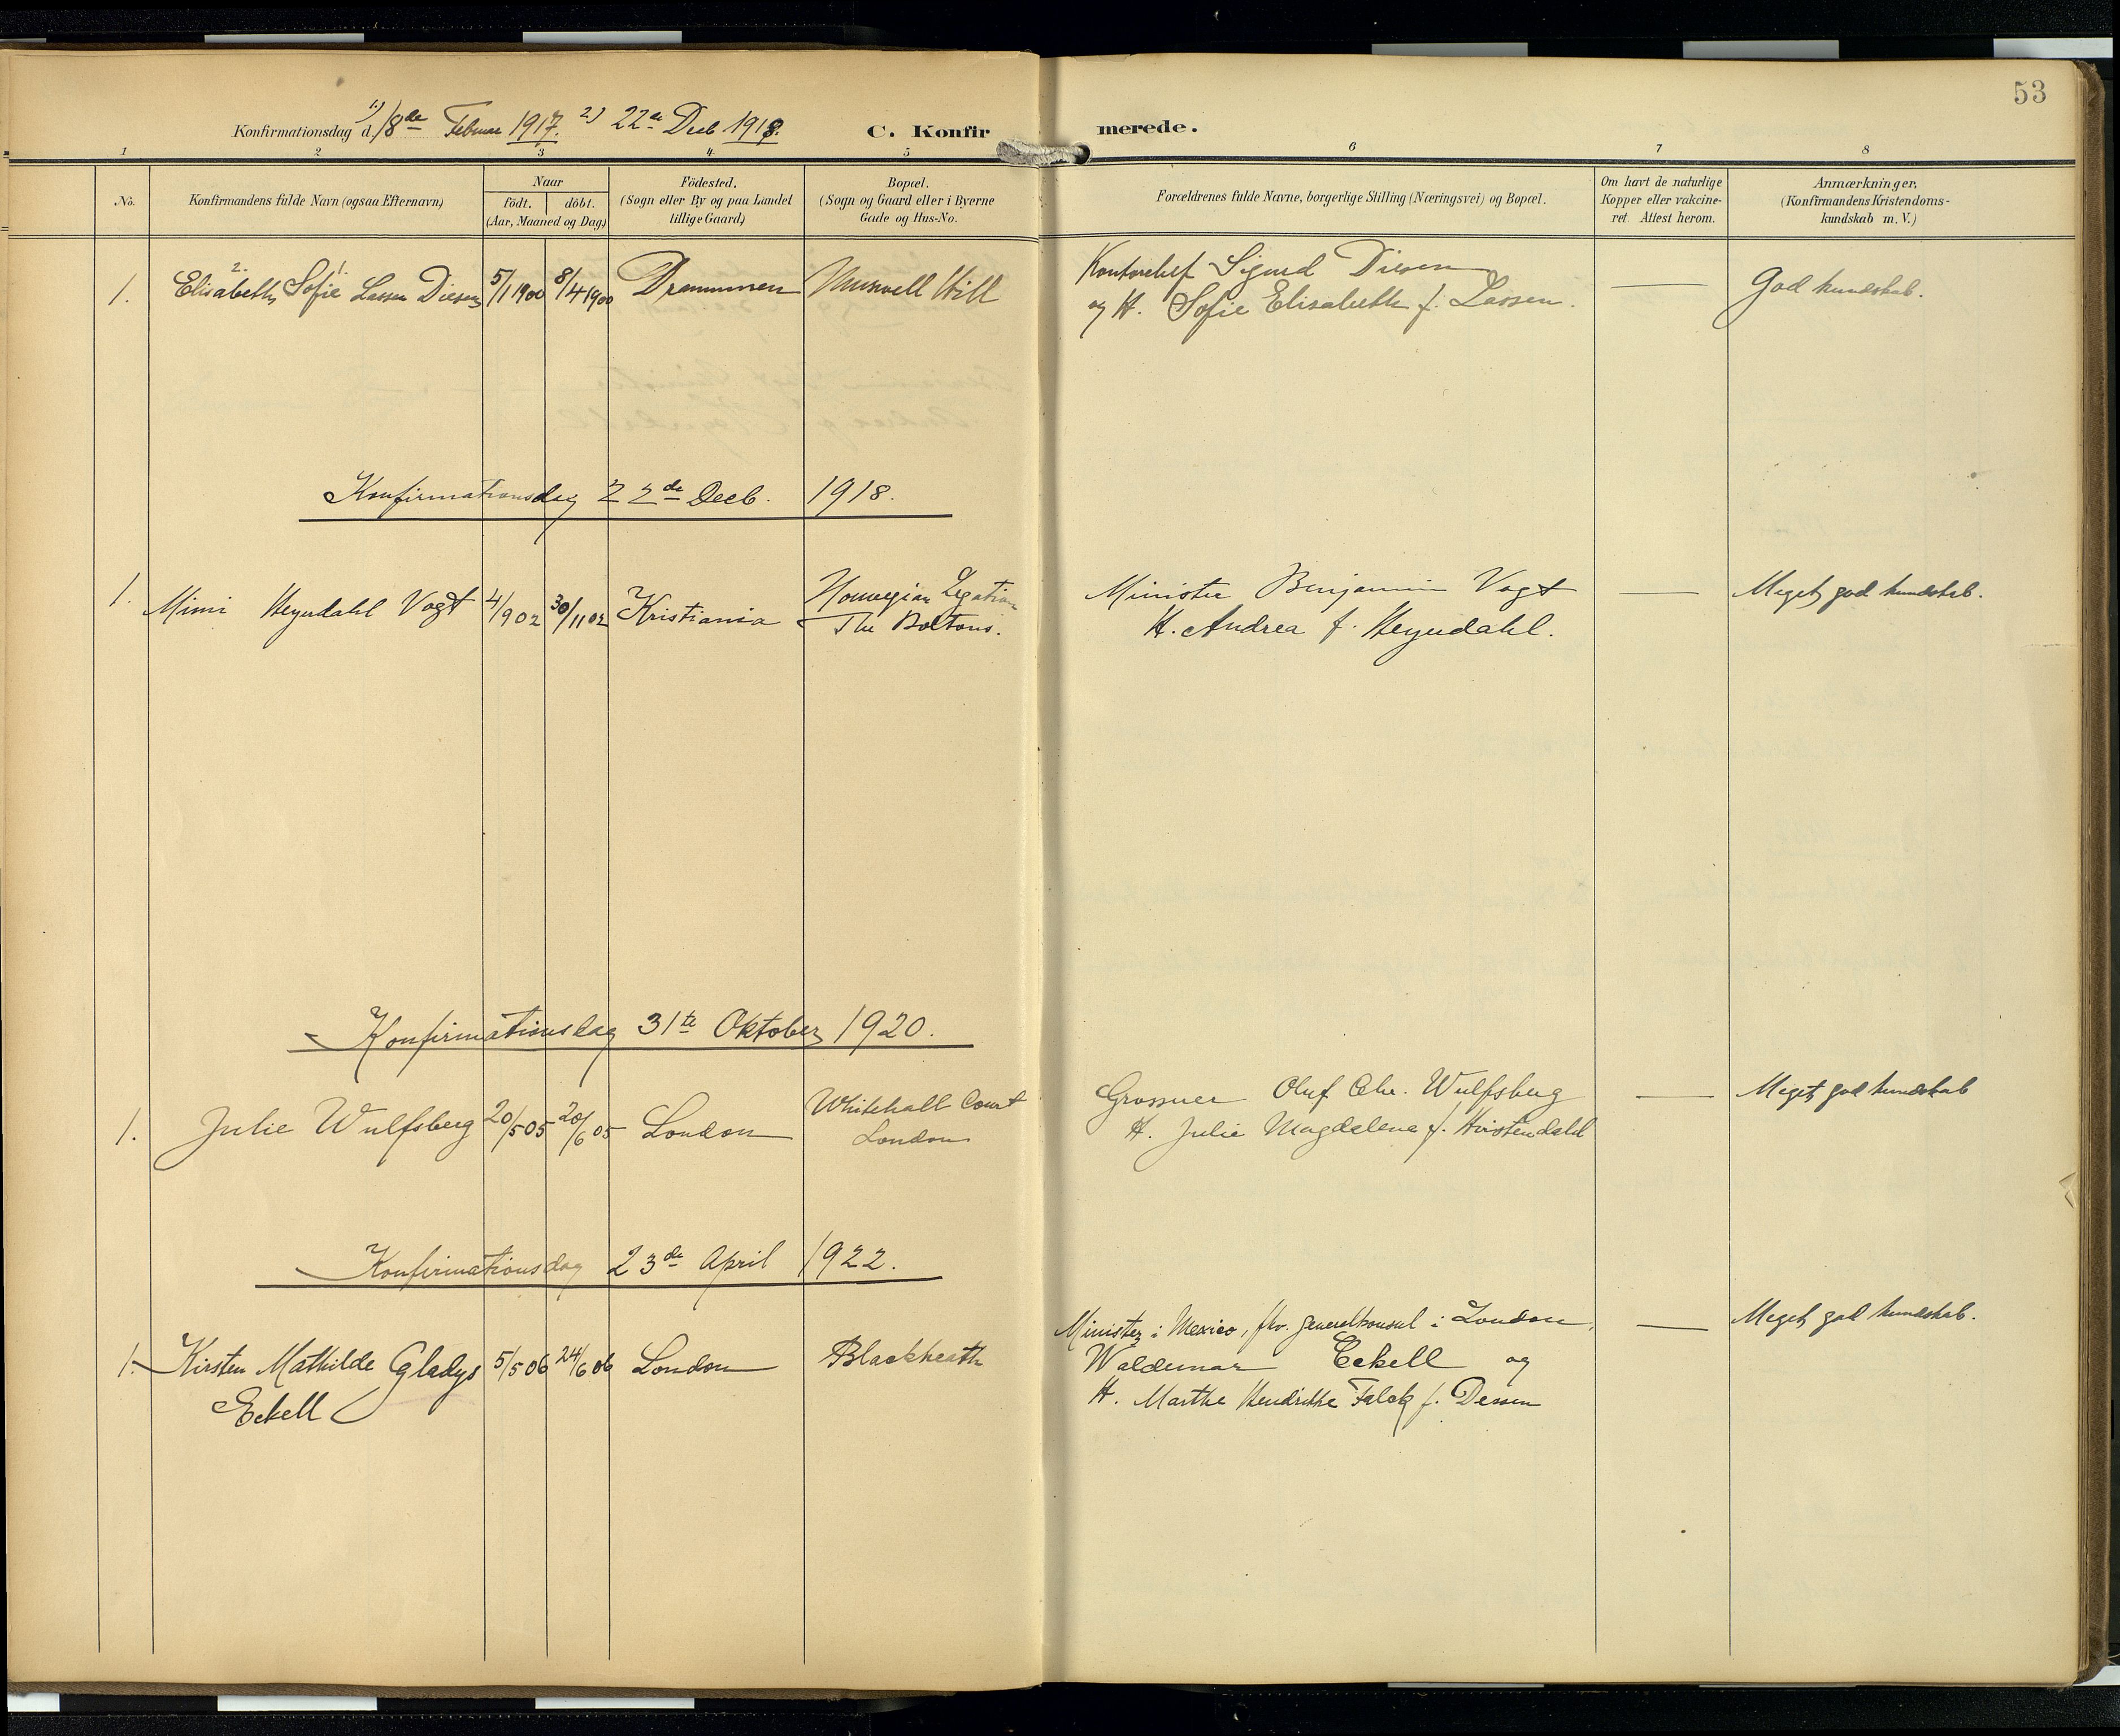 53
Konfirmationsdag d. 1) 18de Februar 1917. 2) 22de Decb 1918.
C. Konfirmerede.
1 2 3 4 5 6 7 8
No.
Konfirmandens fulde Navn (ogsaa Efternavn)
Naar
födt. döbt.
(Aar, Maaned og Dag)
Födested.
(Sogn eller By og paa Landet
tillige Gaard)
Bopæl.
(Sogn og Gaard eller i Byerne
Gade og Hus-No.
Forældrenes fulde Navne, borgerlige Stilling (Næringsvei) og Bopæl.
Om havt de naturlige
Kopper eller vakcine-
ret Attest herom.
Anmærkninger.
(Konfirmandens Kristendoms-
kundskab m. V.)
2. 1.
1. Elisabeth Sofie Lassen Diesen 5/1 1900 8/4 1900 Drammen Muswell Hill
Kontorchef Sigurd Diesen
og H. Sofie Elisabeth f. Lassen.
— God kundskab.
Konfirmationsdag 22de Decb. 1918.
1. Mimi Heyerdahl Vogt 4/902 30/1102 Kristiania
Norwegian Legation
The Boltons.
Minister Benjamin Vogt
H. Andrea f. Heyerdahl.
— Meget god kundskab.
Konfirmationsdag 31te Oktober 1920.
1. Julie Wulfsberg 20/505 20/605 London
Whitehall Court
London
Grosserer Oluf Chr. Wulfsberg
H. Julie Magdalena f. Hvistendahl
— Meget god kundskab
Konfirmationsdag 23de April 1922.
1. Kirsten Mathilde Gladys
Eckell
5/506 24/606 London Blackheath
Minister i Mexico, fhv. generalkonsul i London,
Waldemar Eckell og
H. Marthe Hendrikke Falck f. Dessen
— Meget god kundskab.